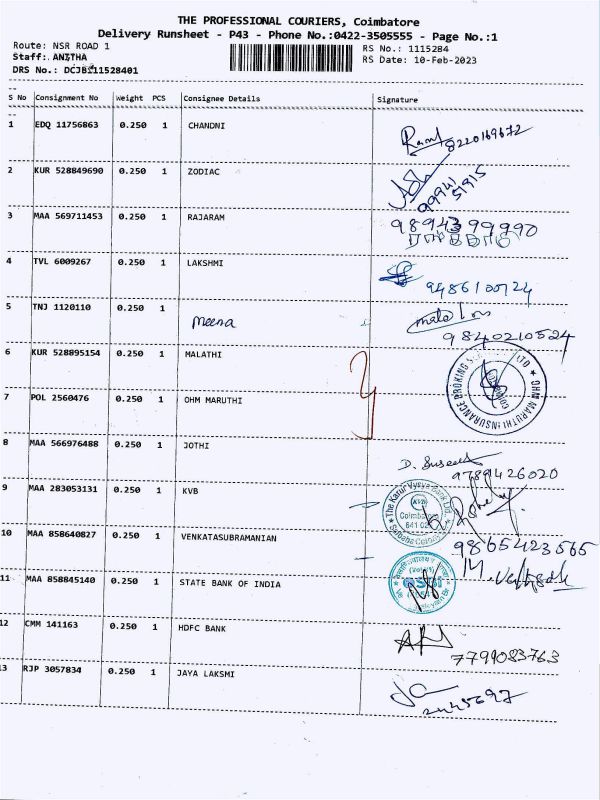 THE PROFESSIONAL COURIERS, Coimbatore
Delivery Runsheet - P43 - Phone No.:0422-3505555 - Page No.:1
Route: NSR ROAD 1 RS No.: 1115284
Staff: ANITHA RS Date: 10-Feb-2023
DRS No.: DCJB111528401
S No Consignment No Weight PCS Consignee Details Signature
1 EDQ 11756863 0.250 1 CHANDNI
8220169672
2 KUR 528849690 0.250 1 ZODIAC
99941
51915
3 MAA 569711453 0.250 1 RAJARAM
9894399990
4 TVL 6009267 0.250 1 LAKSHMI
9486100724
5 TNJ 1120110 0.250 1
meena
9840210524
6 KUR 528895154 0.250 1 MALATHI
7 POL 2560476 0.250 1 OHM MARUTHI
OHM MARUTHI INSURANCE BROKING
8 MAA 566976488 0.250 1 JOTHI
9789426020
9 MAA 283053131 0.250 1 KVB
The Karur Vysya Bank Ltd.
KVB
Coimbatore
641 02
10 MAA 858640827 0.250 1 VENKATASUBRAMANIAN
9865423565
11 MAA 858845140 0.250 1 STATE BANK OF INDIA
12 CMM 141163 0.250 1 HDFC BANK
7799083763
13 RJP 3057834 0.250 1 JAYA LAKSMI
2445697